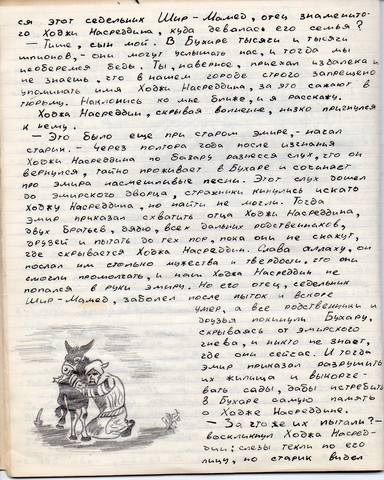 ся этот седельник Шир-Мамед, отец знаменито-
го Ходжи Насреддина, куда девалась его семья?
— Тише, сын мой. В Бухаре тысячи и тысячи
шпионов, они могут услышать нас, и тогда мы
не оберемся беды. Ты, наверное, приехал издалека и
не знаешь, что в нашем городе строго запрещено
упоминать имя Ходжи Насреддина, за это сажают в
тюрьму. Наклонись ко мне ближе, и я расскажу.
Ходжа Насреддин, скрывая волнение, низко пригнулся
к нему.
— Это было еще при старом эмире, — начал
старик. — Через полтора года после изгнания
Ходжи Насреддина по базару разнесся слух, что он
вернулся, тайно проживает в Бухаре и сочиняет
про эмира насмешливые песни. Этот слух дошел
до эмирского дворца, стражники кинулись искать
Ходжу Насреддина, но найти не могли. Тогда
эмир приказал схватить отца Ходжи Насреддина,
двух братьев, дядю, всех дальних родственников,
друзей и пытать до тех пор, пока они не скажут,
где скрывается Ходжа Насреддин. Слава аллаху, он
послал им столько мужества и твердости, что они
смогли промолчать, и наш Ходжа Насреддин не
попался в руки эмиру. Но его отец, седельник
Шир-Мамед, заболел после пыток и вскоре
умер, а все родственники и
друзья покинули Бухару,
скрываясь от эмирского
гнева, и никто не знает,
где они сейчас. И тогда
эмир приказал разрушить
их жилища и выкорче-
вать сады, дабы истребить
в Бухаре самую память
о Ходже Насреддине.
— За что же их пытали? —
воскликнул Ходжа Насред-
дин; слезы текли по его
лицу, но старик видел